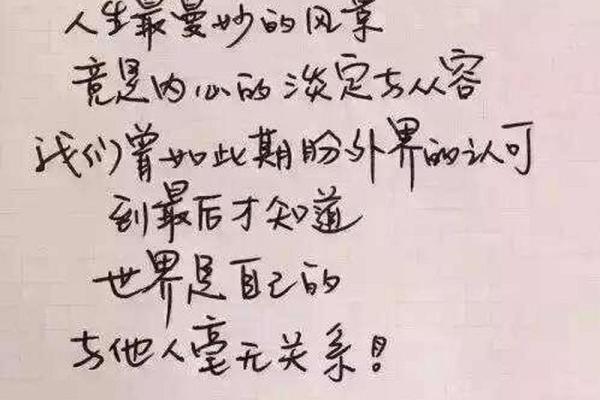 人生最曼妙的风景
竟是内心的淡定与从容
我们曾如此期盼外界的认可
到最后才知道
世界是自己的
与他人毫无关系!